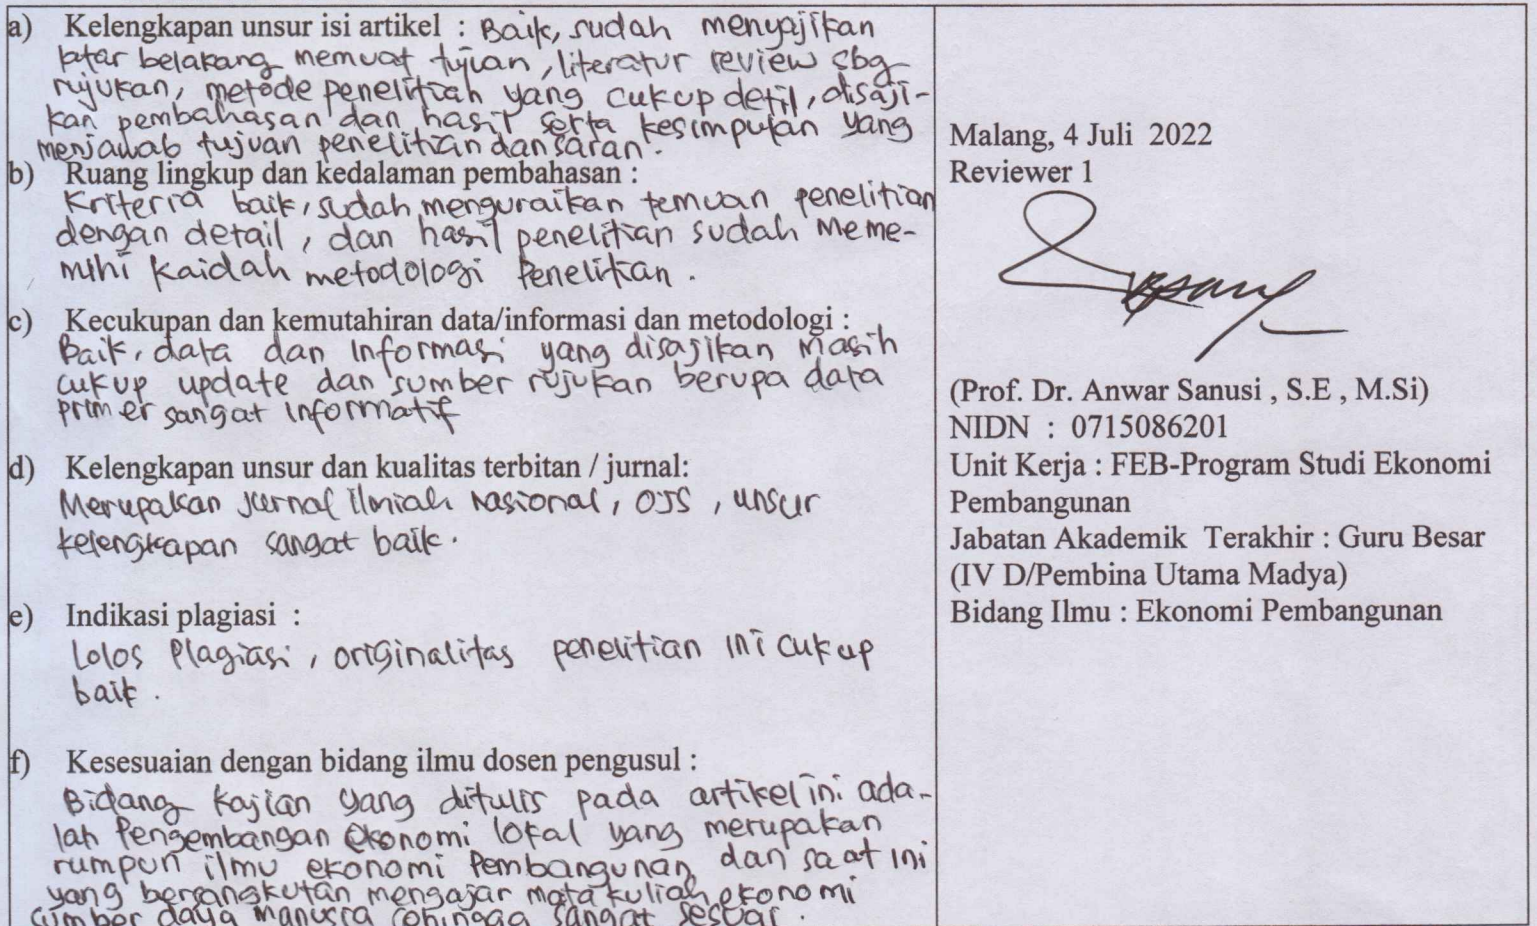 a) Kelengkapan unsur isi artikel : Baik, sudah menyajikan
latar belakang memuat tujuan, literatur review sbg
rujukan, metode penelitian yang cukup detil, disaji-
kan pembahasan dan hasil serta kesimpulan yang
menjawab tujuan penelitian dan saran.
b) Ruang lingkup dan kedalaman pembahasan :
Kriteria baik, sudah menguraikan temuan penelitian
dengan detail, dan hasil penelitian sudah meme-
nuhi kaidah metodologi Penelitian.
c) Kecukupan dan kemutahiran data/informasi dan metodologi :
Baik, data dan Informasi yang disajikan masih
cukup update dan sumber rujukan berupa data
primer sangat informatif
d) Kelengkapan unsur dan kualitas terbitan / jurnal:
Merupakan Jurnal ilmiah nasional, OJS, unsur
kelengkapan sangat baik.
e) Indikasi plagiasi :
Lolos Plagiasi, originalitas penelitian ini cukup
baik.
f) Kesesuaian dengan bidang ilmu dosen pengusul :
Bidang kajian yang ditulis pada artikel ini ada-
lah Pengembangan ekonomi lokal yang merupakan
rumpun ilmu ekonomi Pembangunan dan saat ini
yang bersangkutan mengajar mata kuliah ekonomi
sumber daya manusia sehingga sangat sesuai.
Malang, 4 Juli 2022
Reviewer 1
(Prof. Dr. Anwar Sanusi , S.E , M.Si)
NIDN : 0715086201
Unit Kerja : FEB-Program Studi Ekonomi
Pembangunan
Jabatan Akademik Terakhir : Guru Besar
(IV D/Pembina Utama Madya)
Bidang Ilmu : Ekonomi Pembangunan